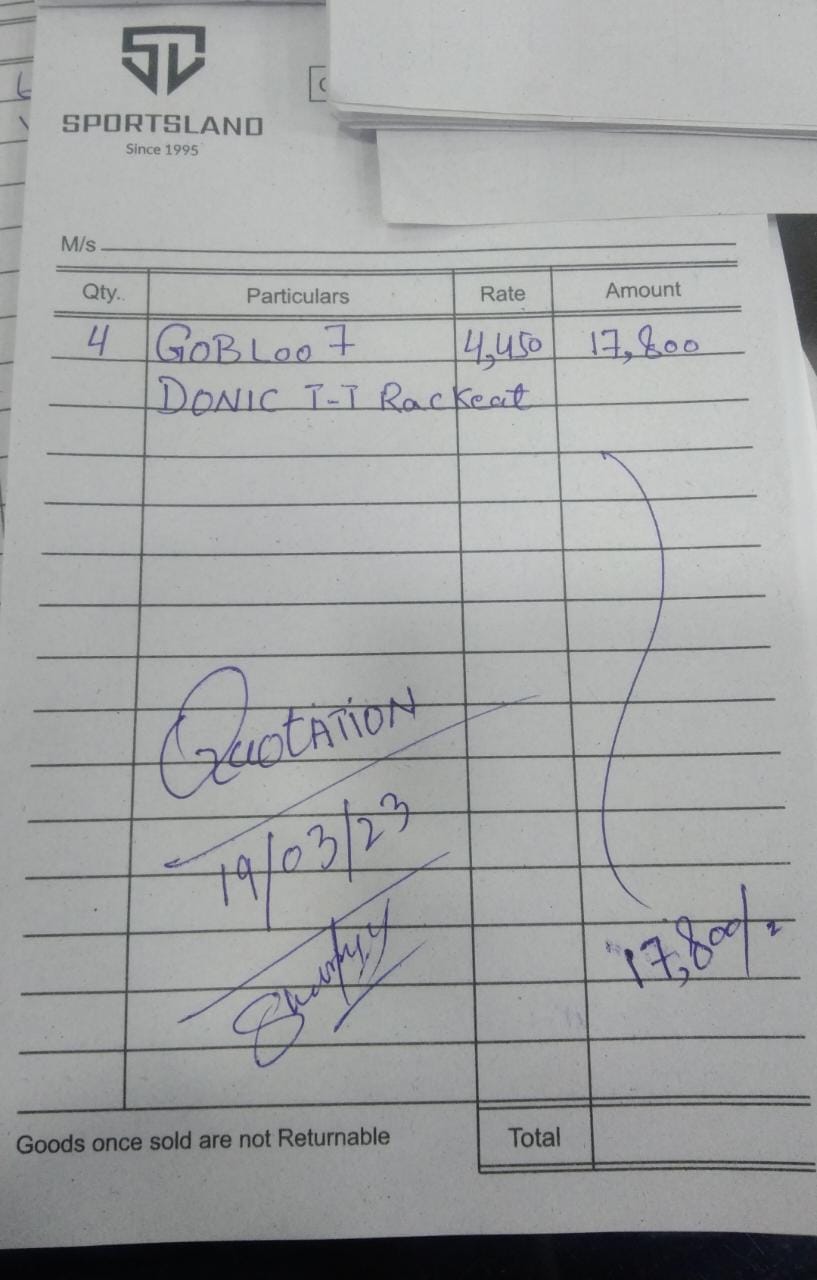 SPORTSLAND
Since 1995
M/s
Qty.. Particulars Rate Amount
4 GOBLOO 7 4,450 17,800
DONIC T-T Rackeat
QuotATION
19/03/23
17,800/
Goods once sold are not Returnable Total